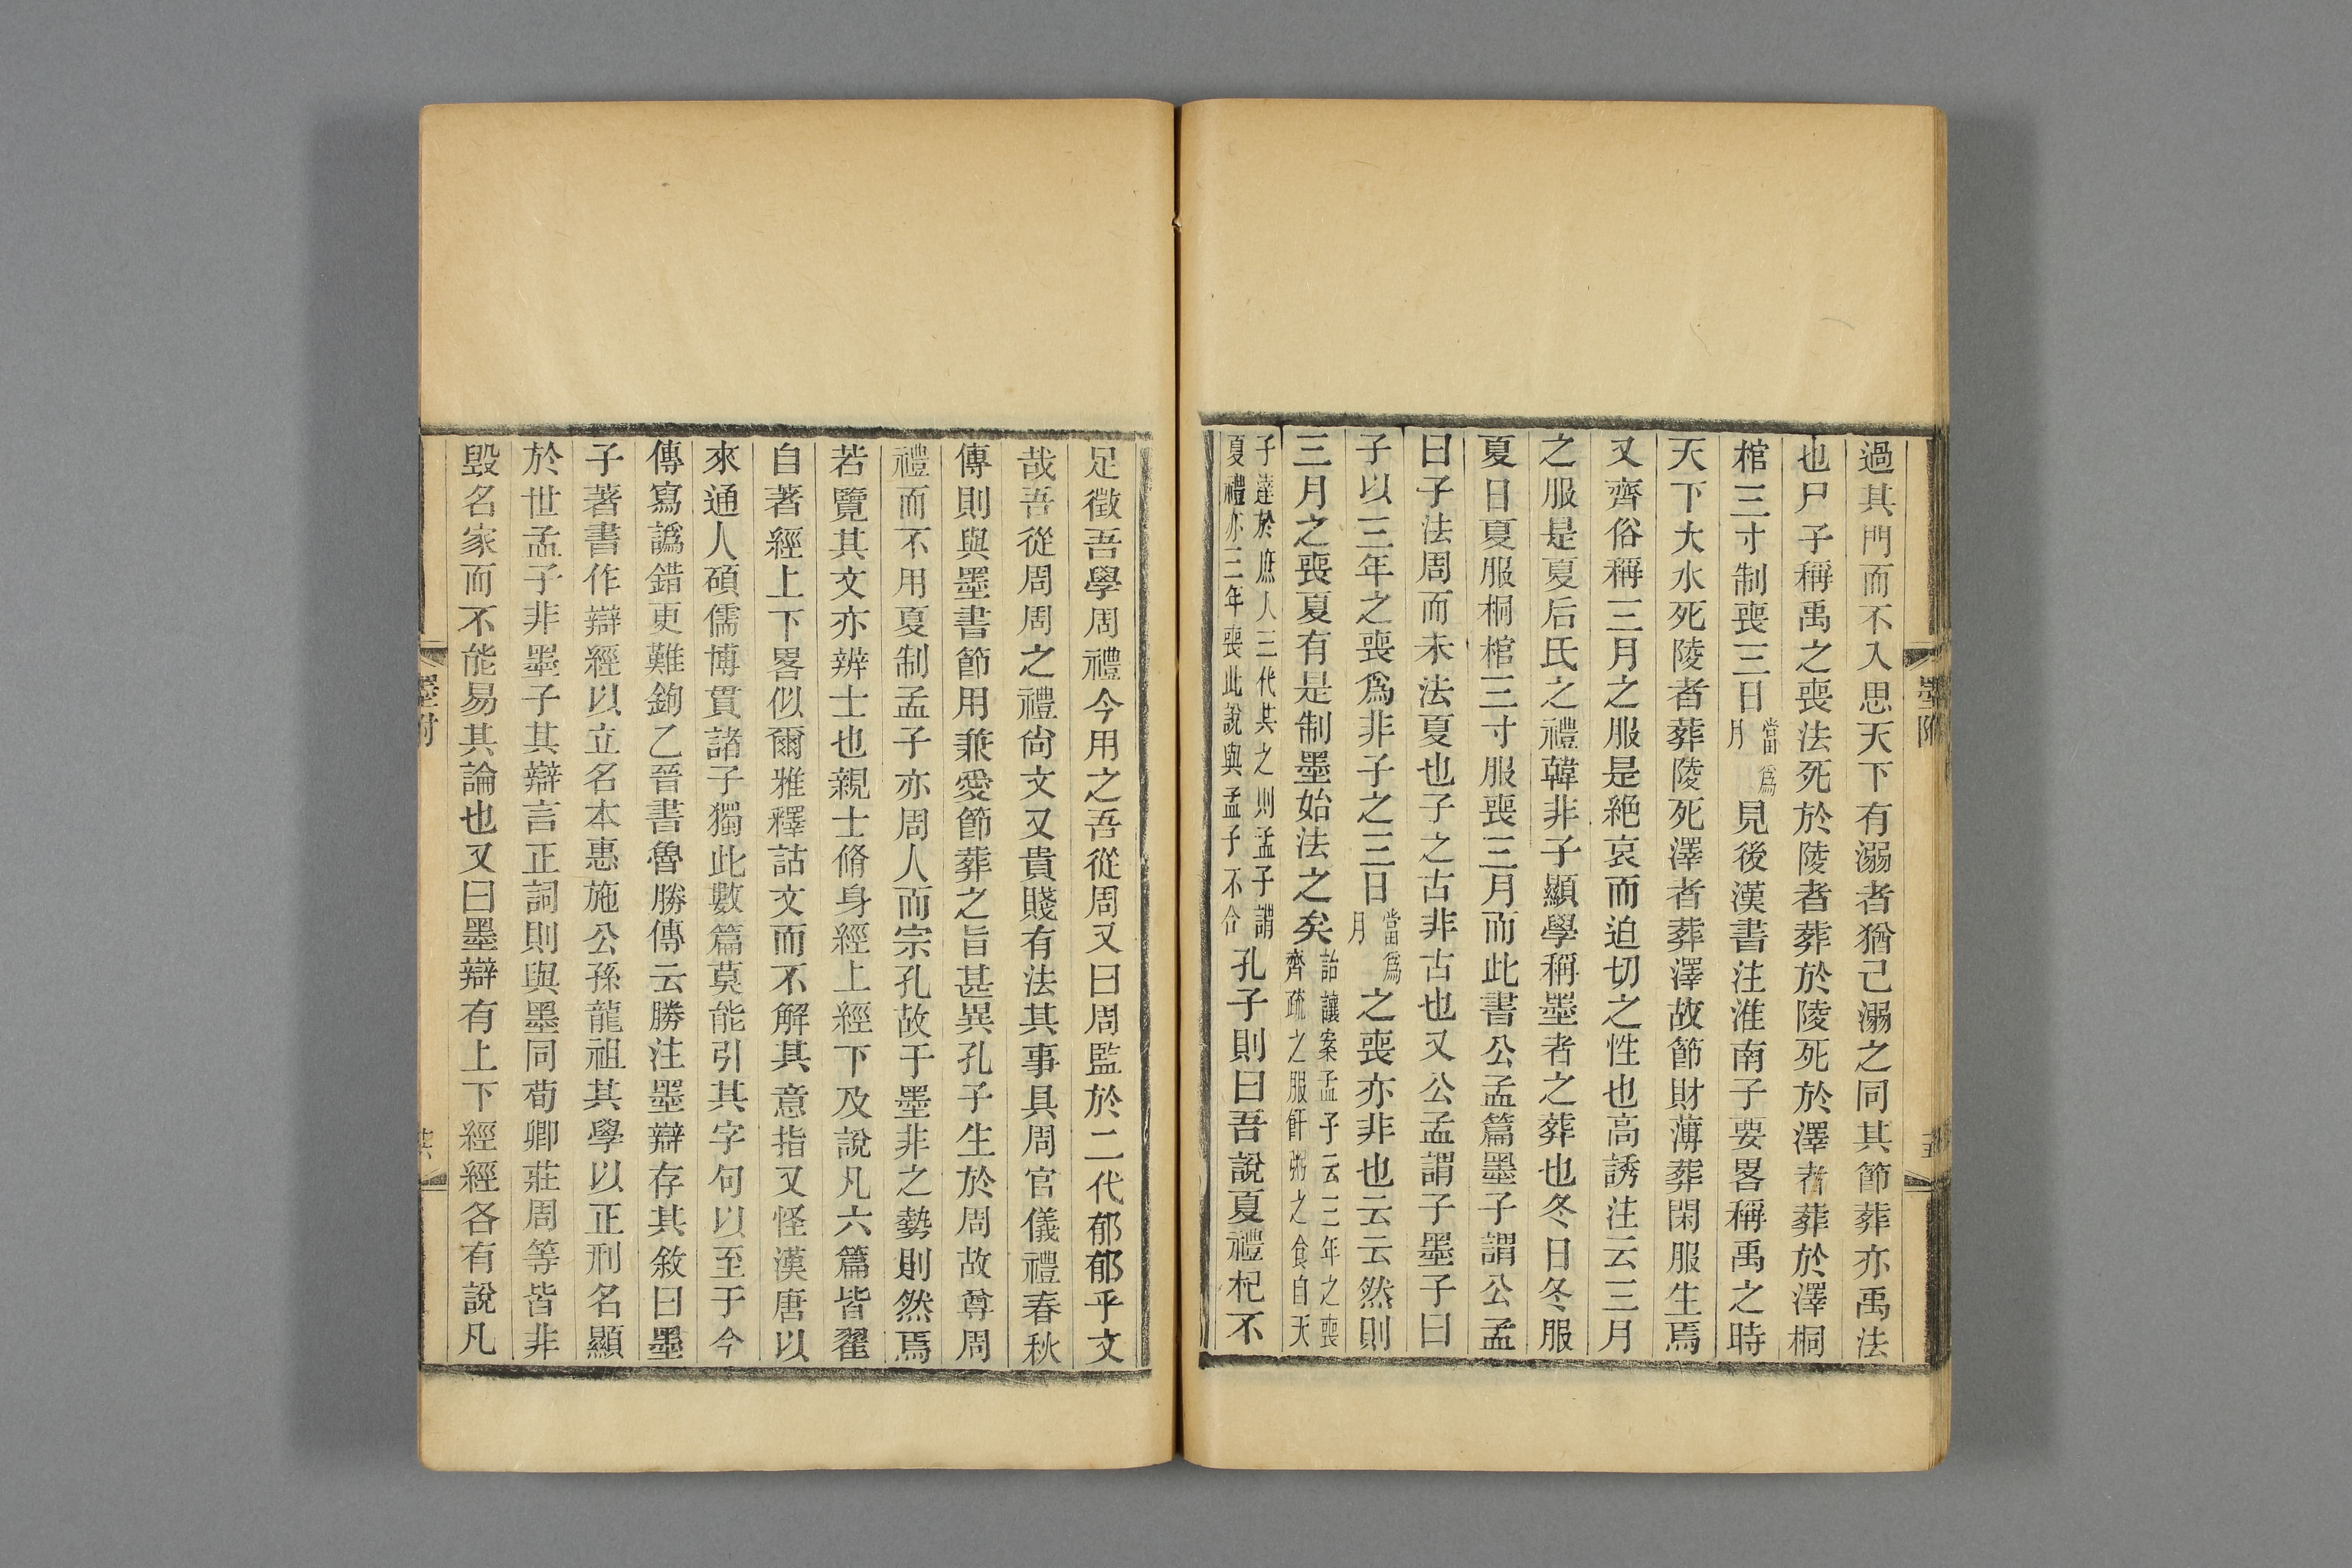 過其門而不入思天下有溺者猶己溺之同其節葬亦禹法
也尸子稱禹之喪法死於陵者葬於陵死於澤者葬於澤桐
棺三寸制喪三日當爲月見後漢書注淮南子要畧稱禹之時
天下大水死陵者葬陵死澤者葬澤故節財薄葬閑服生焉
又齊俗稱三月之服是絕哀而迫切之性也高誘注云三月
之服是夏后氏之禮韓非子顯學稱墨者之葬也冬日冬服
夏日夏服桐棺三寸服喪三月而此書公孟篇墨子謂公孟
曰子法周而未法夏也子之古非古也又公孟謂子墨子曰
子以三年之喪爲非子之三日當爲月之喪亦非也云云然則
三月之喪夏有是制墨始法之矣詒讓案孟子云三年之喪齊疏之服飦粥之食自天
子達於庶人三代共之則孟子謂夏禮亦三年喪此說與孟子不合孔子則曰吾說夏禮杞不
墨附
足徵吾學周禮今用之吾從周又曰周監於二代郁郁乎文
哉吾從周周之禮尙文又貴賤有法其事具周官儀禮春秋
傳則與墨書節用兼愛節葬之旨甚異孔子生於周故尊周
禮而不用夏制孟子亦周人而宗孔故于墨非之勢則然焉
若覽其文亦辨士也親士脩身經上經下及說凡六篇皆翟
自著經上下畧似爾雅釋詁文而不解其意指又怪漢唐以
來通人碩儒博貫諸子獨此數篇莫能引其字句以至于今
傳寫譌錯更難鉤乙晉書魯勝傳云勝注墨辯存其敘曰墨
子著書作辯經以立名本惠施公孫龍祖其學以正刑名顯
於世孟子非墨子其辯言正詞則與墨同荀卿莊周等皆非
毀名家而不能易其論也又曰墨辯有上下經經各有說凡
墨附